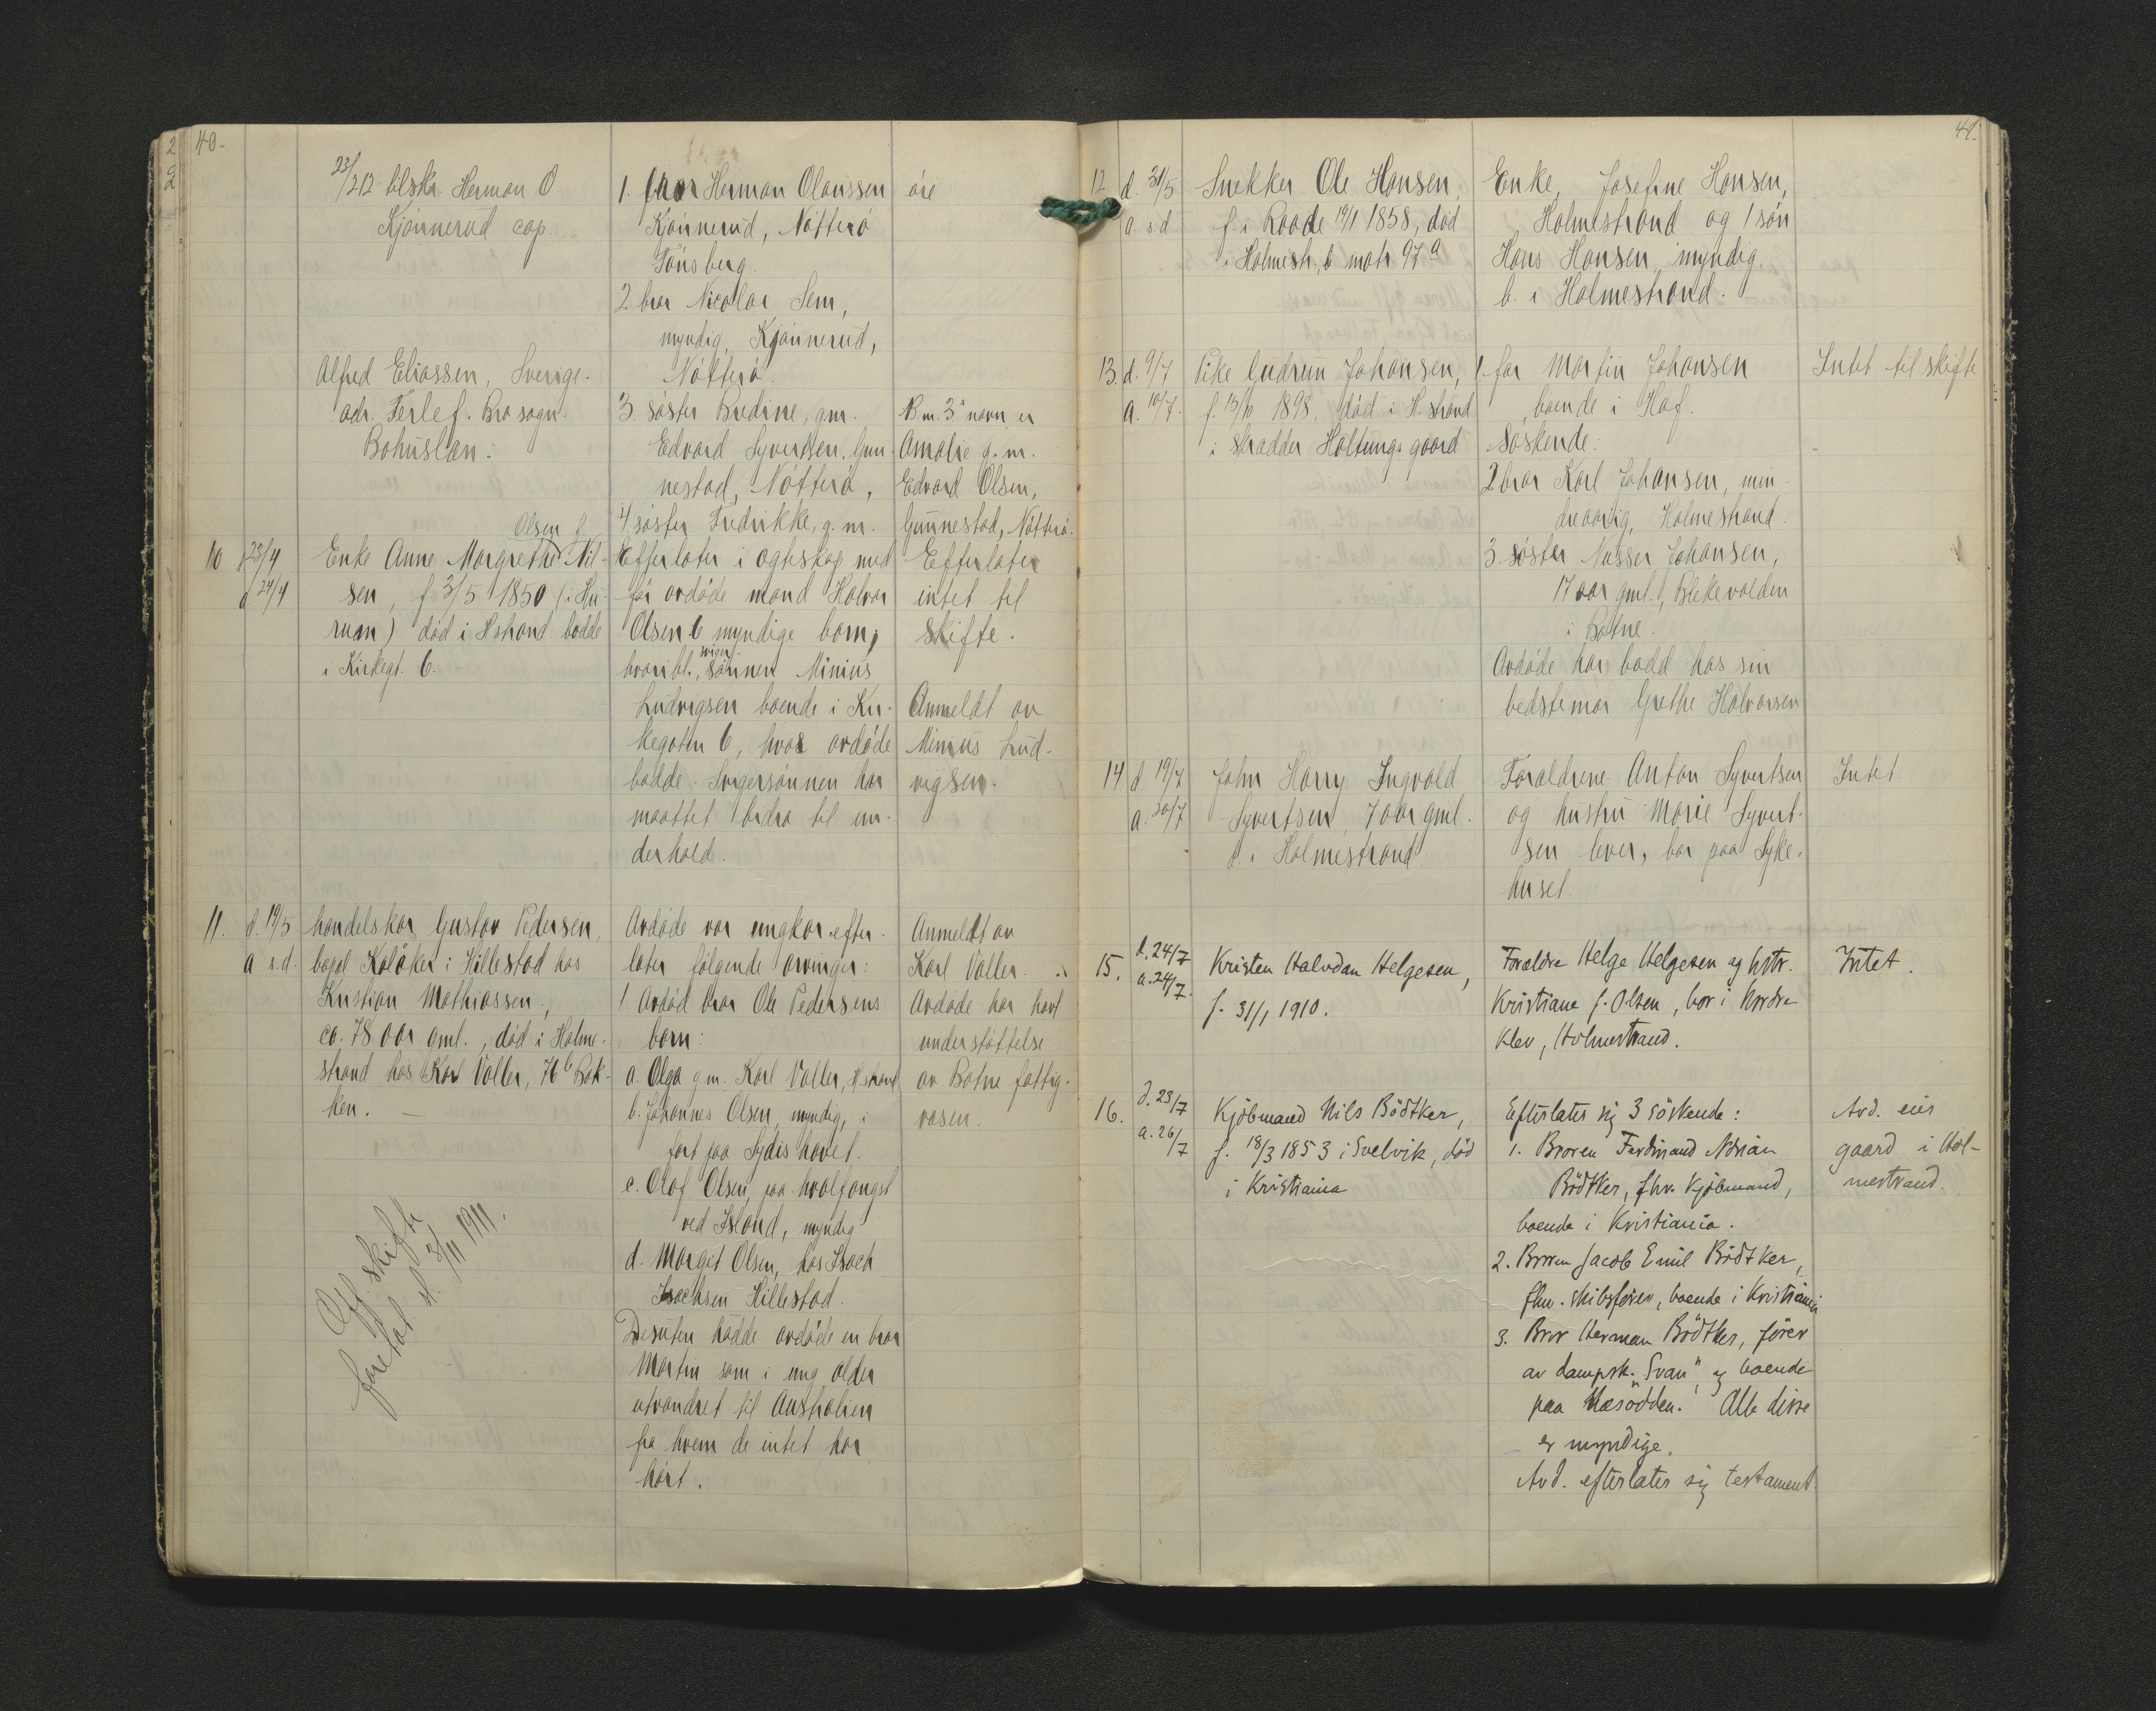 40.
23/2 12 tilskr. Herman O
Kjønnerud cop.
Alfred Eliassen, Sverige.
adr. Ferlef. Bro sogn.
Bohuslan:
1. far Herman Olaussen
Kjønnerud, Nøtterø
Tønsberg.
2. bror Nicolai Sem,
myndig, Kjønnerud,
Nøtterø.
3 søster Bredine, g.m.
Edvard Syvertsen, Gun-
nestad, Nøtterø,
4 søster Fredrikke, g.m.
øre
N.m. 3° navn er
Amalie g.m.
Edvard Olsen,
Gunnestad, Nøtterø.
10 d 23/4
a 24/4
Olsen f.
Enke Anne Margrethe Nil-
sen, f 3/5 1850 (i Hu-
rum) død i Hstrand bodde
i Kirkegt. 6.
Efterlater i egteskap med
før avdøde mand Halvor
Olsen 6 myndige barn,
hvoribl. svigersønnen Minius
Ludvigsen boende i Kir-
kegaten 6, hvor avdøde
bodde. Svigersønnen har
maattet bidra til un-
derhold.
Efterlater
intet til
skifte.
Anmeldt av
Minius Lud-
vigsen.
11. d. 19/5
a s.d.
handelskar Gustav Pedersen,
bopæl Kolåker i Hillestad hos
Kristian Mathiassen,
ca. 78 aar gml., død i Holme-
strand hos Karl Valler, 76 b Bak-
ken.
Avdøde var ungkar efter-
later følgende arvinger:
1 Avdød bror Ole Pedersens
barn:
a. Olga g.m. Karl Valler, H.strand
b. Johannes Olsen, myndig, i
fart paa Sydishavet.
c. Olaf Olsen, paa hvalfangst
ved Island, myndig
d. Margit Olsen, hos Isach
Isachsen Hillestad.
Desuten hadde avdøde en bror
Martin som i ung alder
utvandret til Australien
fra hvem de intet har
hørt.
Anmeldt av
Karl Valler.
Avdøde har havt
understøttelse
av Botne fattig-
væsen.
Off. skifte
foretat d. 3/11 1911.
41.
12. d. 31/5
a. s.d
Snekker Ole Hansen,
f. i Raade 19/1 1858, død
i Holmestr., b matr 97 a
Enke, Josefine Hansen,
Holmestrand og 1 søn
Hans Hansen, myndig.
b. i Holmestrand.
13. d. 9/7
a. 10/7.
Pike Gudrun Johansen,
f. 13/10 1898. død i H.strand
i skrædder Holtungs gaard
1. far Martin Johansen
boende i Hof.
Søskende:
2 bror Karl Johansen, min-
dreaarig, Holmestrand.
3. søster Nusser Johansen,
17 aar gml., Blekevolden
i Botne.
Avdøde har bodd hos sin
bedstemor Grethe Halvorsen
Intet til skifte
14 d 19/7
a. 20/7
John Harry Ingvald
Syvertsen, 7 aar gml.
d. i Holmestrand
Forældrene Anton Syvertsen
og hustru Marie Syvert-
sen lever, bor paa Syke-
huset.
Intet
15. d. 24/7
a. 24/7.
Kristen Halvdan Helgesen,
f. 31/1 1910.
Forældre Helge Helgesen og hstr.
Kristiane f. Olsen, bor i Nordre
Klev, Holmestrand.
Intet.
16. d. 23/7
a. 26/7
Kjøbmand Nils Bödtker,
f. 18/3 1853 i Svelvik, död
i Kristiania
Efterlater sig 3 söskende:
1. Broren Ferdinand Adrian
Bödtker, fhv. kjöbmand,
boende i Kristiania.
2. Broren Jacob Emil Bödtker,
fhv. skibsfører, boende i Kristiania
3. Bror Herman Bödtker, förer
av dampsk. „Svan", og boende
paa Næsodden. Alle disse
er myndige.
Avd. efterlater sig testament.
Avd. eier
gaard i Hol-
mestrand.